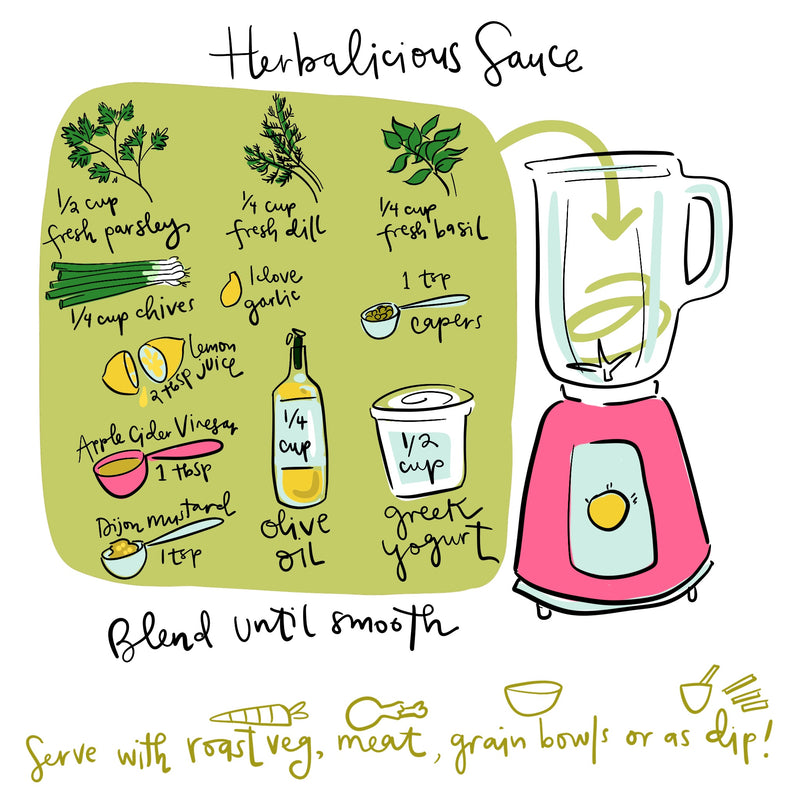 Herbalicious Sauce
1/2 cup
fresh parsley
1/4 cup
fresh dill
1/4 cup
fresh basil
1/4 cup chives
1 clove
garlic
1 tsp
capers
lemon
juice
2 tbsp
Apple Cider Vinegar
1 tbsp
Dijon mustard
1 tsp
1/4
cup
olive
oil
1/2
cup
greek
yogurt
Blend until smooth
Serve with roast veg, meat, grain bowls or as dip!